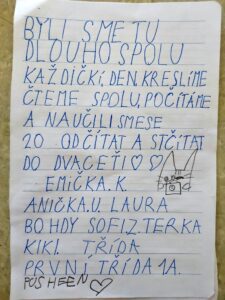 BYLI SME TU
DLOUHO SPOLU
KAŽDIČKÍ, DEN, KRESLÍME
ČTEME SPOLU, POČÍTÁME
A NAUČILI SMESE
20 ODČÍTAT A STČÍTAT
DO DVACETI ♡ ♡
EMIČKA. K.
ANIČKA.U. LAURA
BOHDY SOFIZ. TERKA
KIKI. TŘÍDA
PRVNÍ, TŘÍDA 1A.
PUSHEEN ♡